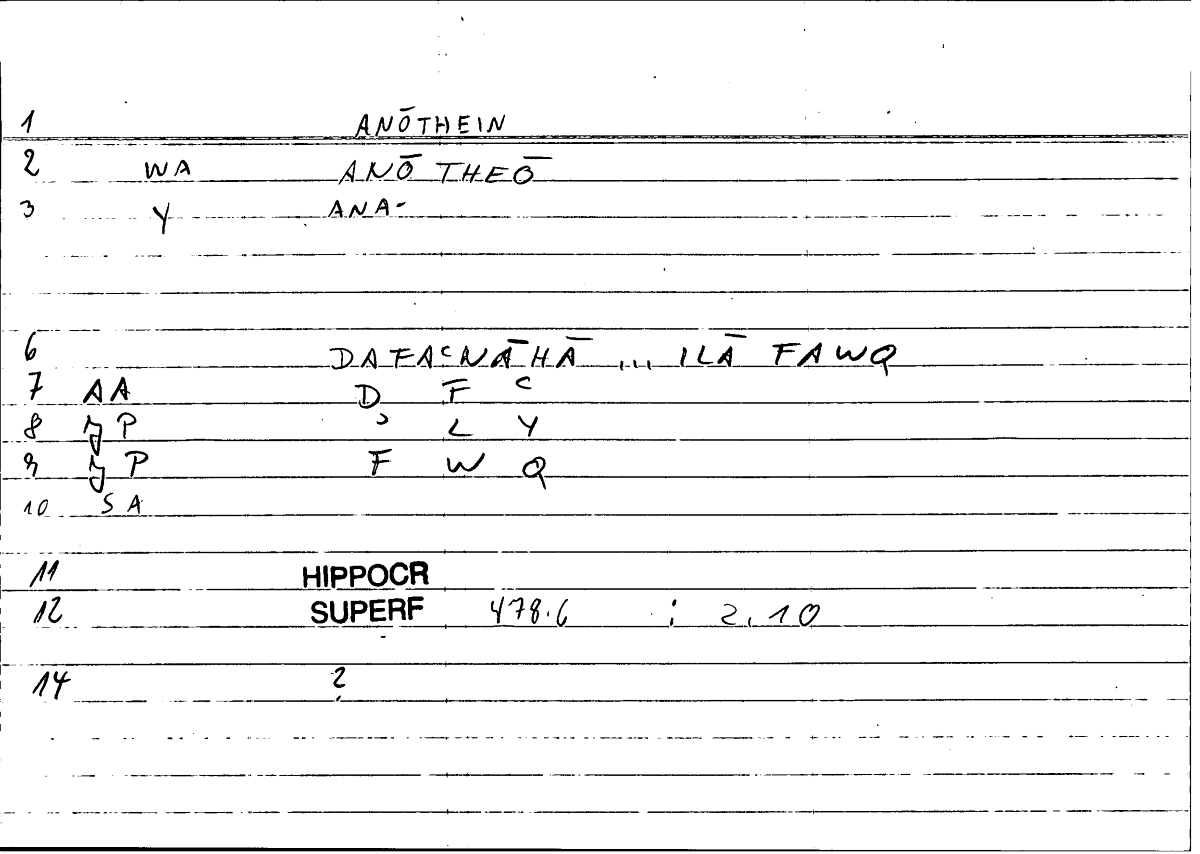 1 ANŌTHEIN
2 WA ANŌ THEŌ
3 Y ANA-
6 DAFAʿNĀHĀ ... ILĀ FAWQ
7 AA D F ʿ
8 P ʾ L Y
9 P F W Q
10 SA
11 HIPPOCR
12 SUPERF 478.6 ; 2.10
14 ?